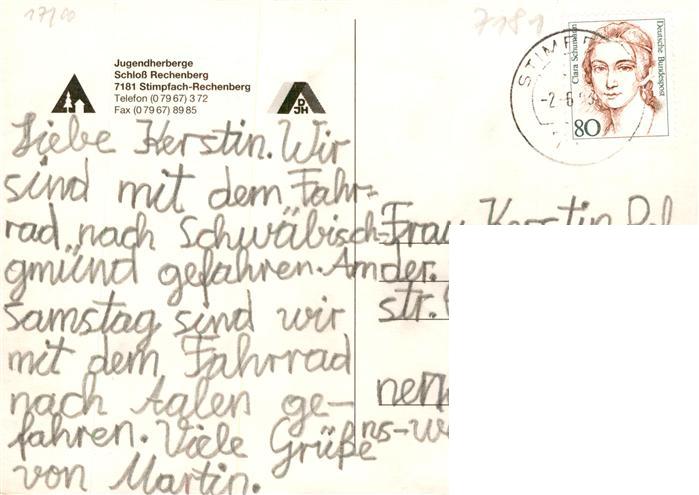 17/00
7181
Jugendherberge
Schloß Rechenberg
7181 Stimpfach-Rechenberg
Telefon (0 79 67) 3 72
Fax (0 79 67) 89 85
DJH
Deutsche Bundespost
Clara Schumann
80
Liebe Kerstin. Wir
sind mit dem Fahr-
rad nach Schwäbisch-
gmünd gefahren. Am
Samstag sind wir
mit dem Fahrrad
nach Aalen ge-
fahren. Viele Grüße
von Martin.
Frau Kerstin
der.
str.